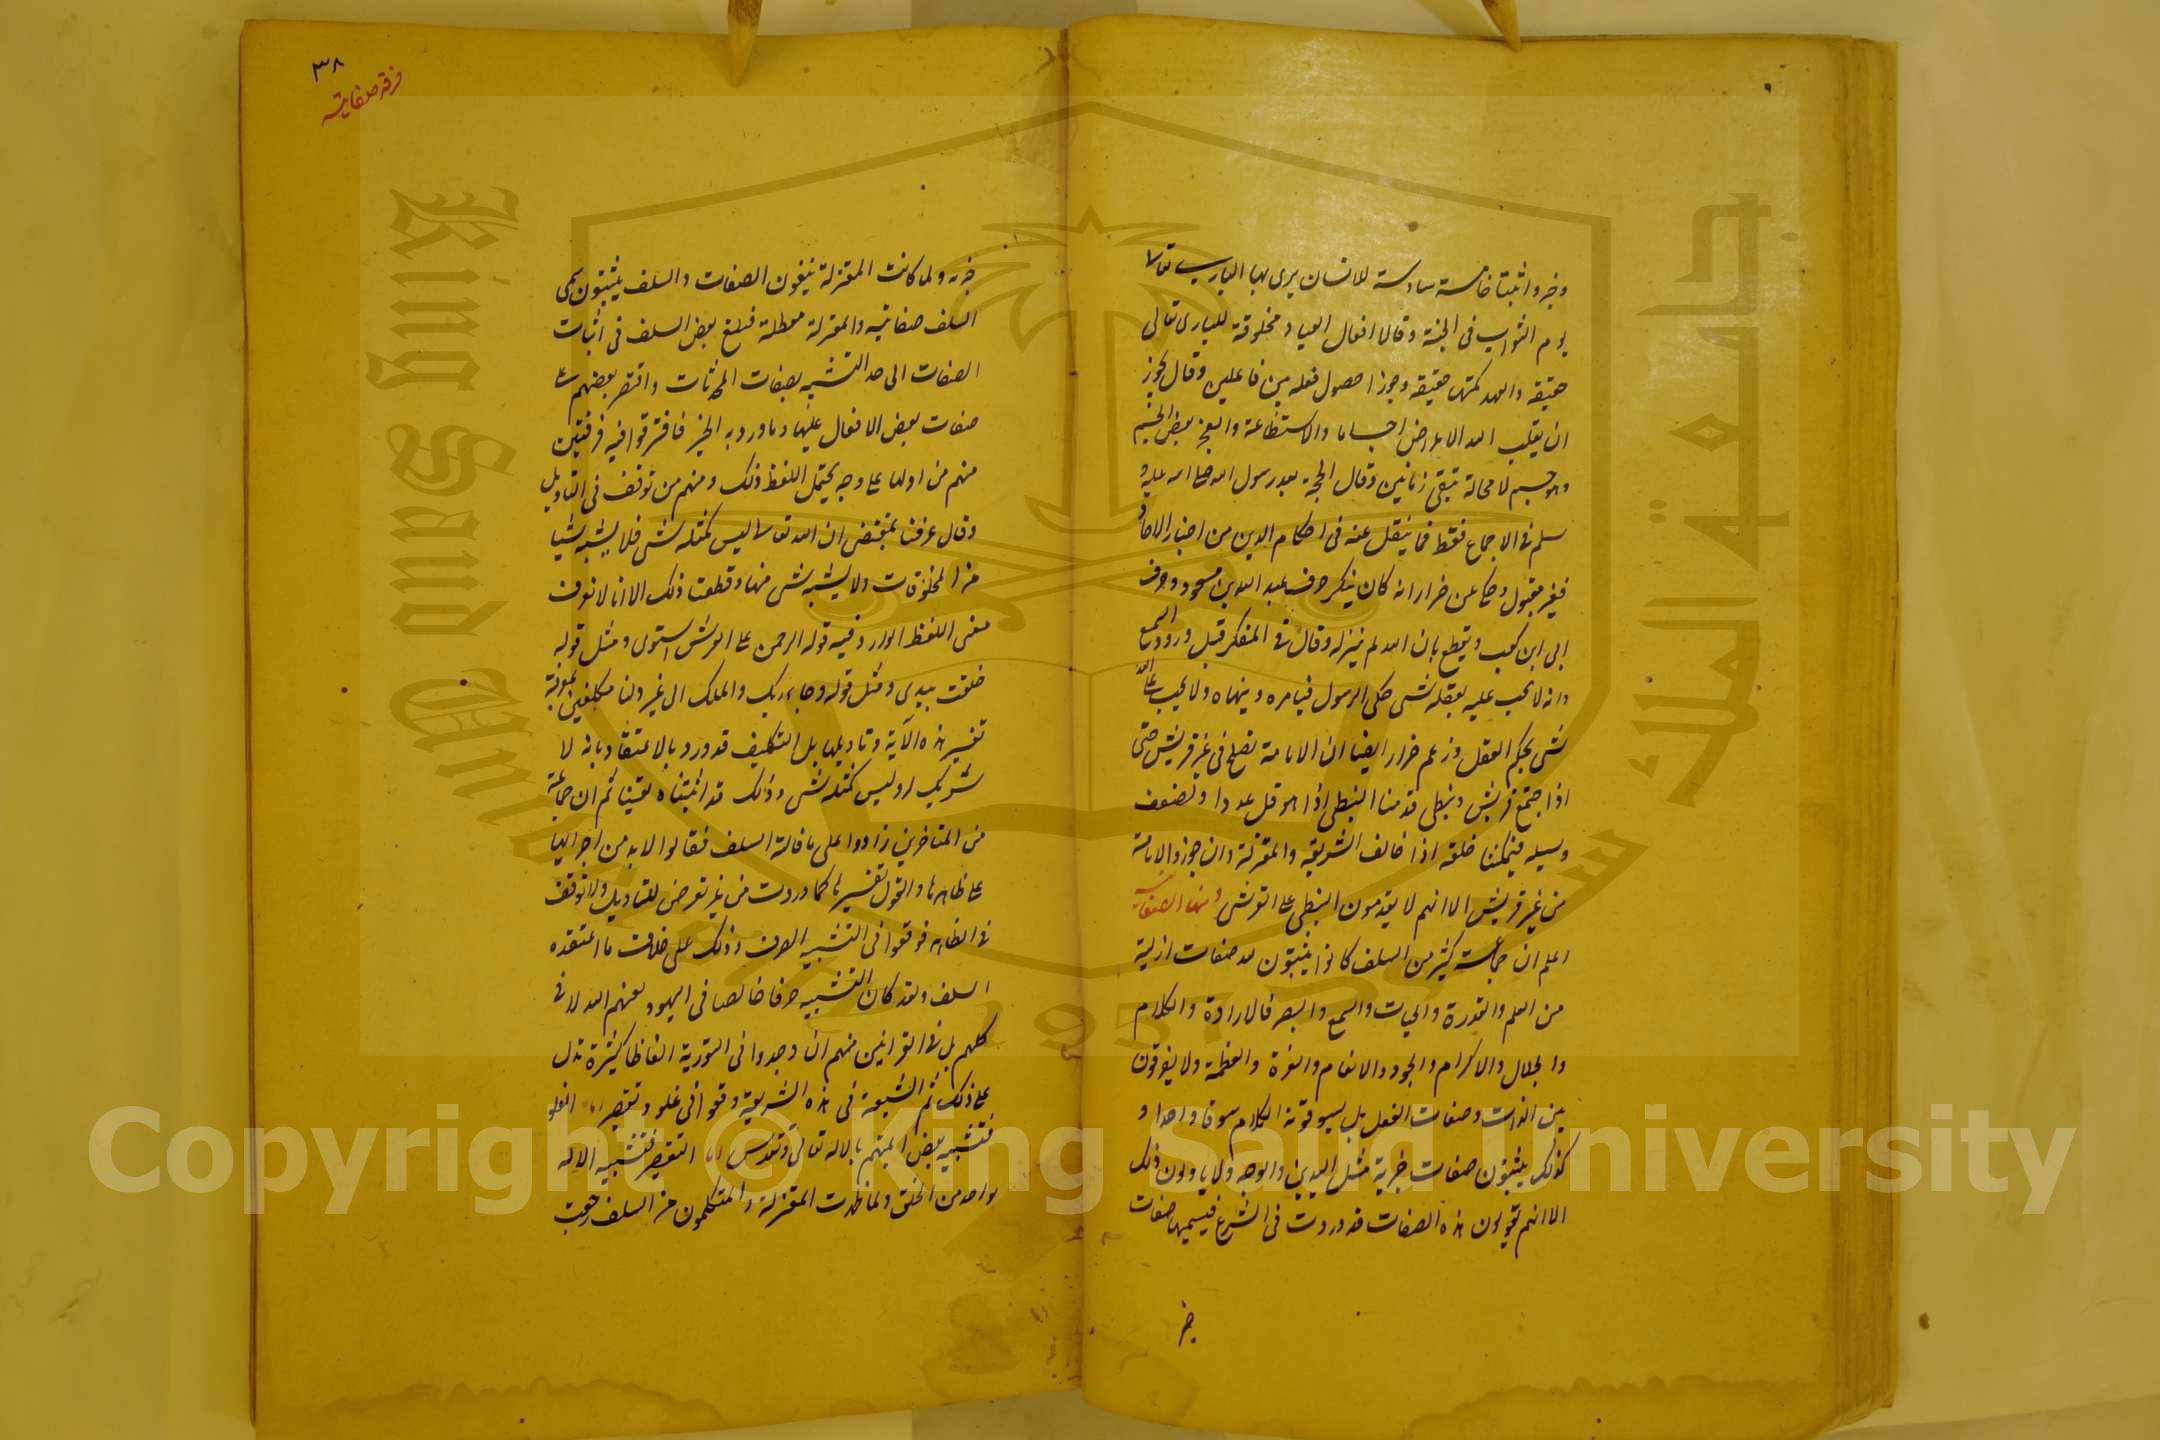 وخبر واثبتا حاسة سادسة للانسان يرى بها الباري تعالا
يوم الثواب فى الجنة وقالا افعال العباد مخلوقة للبارى تعالى
حقيقه والعبد مكتسبها حقيقه وجوزا حصول فعله بين فاعلين وقال يجوز
ان يقلب الله الاعراض اجساما والاستطاعة والعجز بعض الجسم
وهو جسم لا محالة تبقى زمانين وقال الحجة بعد رسول الله صلى الله عليه و
سلم فى الاجماع فقط فما ينقل عنه فى احكام الدين من اخبار الاحاد
فغير مقبول وحكى عن ضرار انه كان ينكر حرف عبد الله بن مسعود وحرف
ابى ابن كعب ويقطع بان الله لم ينزله وقال فى المفكر قبل ورود السمع
وانه لا يجب عليه بعقله شى حتى ياتى الرسول فيامره وينهاه ولا يجب على الله
شى بحكم العقل وزعم ضرار ايضا ان الامامة تصلح فى غير قريش حتى
اذا اجتمع قريش ونبطى قدمنا النبطى اذا هو قل عددا واضعف
وسيله فيمكننا خلعه اذا خالف الشريعة والمعتزلة وان جوزوا الامامة
من غير قريش الا انهم لا يقدمون النبطى على القرشى ومنها الصفاتية
اعلم ان جماعة كثير من السلف كانوا يثبتون لله صفات ازلية
من العلم والقدرة والحيات والسمع والبصر فالارادة والكلام
والجلال والاكرام والجود والانعام والعزة والعظمة ولا يفرقون
بين الذات وصفات الفعل بل يسوقون الكلام سوقا واحدا و
كذلك يثبتون صفات خبرية مثل اليدين والوجه ولا ياولون ذلك
الا انهم يقولون هذه الصفات قد وردت فى الشرع فيسميها صفات
خبر
٣٨
فرقه صفاتيه
خبريه ولما كانت المعتزلة ينفون الصفات والسلف يثبتون سمى
السلف صفاتيه والمعتزلة معطلة فبلغ بعض السلف فى اثبات
الصفات الى حد التشبيه بصفات المحدثات واقتصر بعضهم على
صفات بعض الافعال عليها وما ورد به الخبر فافترقوا فيه فرقتين
منهم من اولها على وجه يحتمل اللفظ ذلك ومنهم من توقف فى التاويل
وقال عرفنا بمقتضى ان الله تعالا ليس كمثله شى فلا يشبه شيا
من المخلوقات ولا يشبه شى منها وقطعنا ذلك الا انا لا نعرف
معنى اللفظ الوارد فيه قوله الرحمن على العرش استوى ومثل قوله
خلقت بيدى ومثل قوله وجاء ربك والملك الى غير ولنا مكلفين بمعرفة
تفسير هذه الآية وتاويلها بل التكليف قد ورد بالاعتقاد بانه لا
شريك له وليس كمثله شى وذلك قد اثبتناه يقينا ثم ان جماعة
من المتاخرين زادوا على ما قاله السلف فقالوا لابد من اجرائها
على ظاهرها والقول بتفسيرها كما وردت من غير تعرض للتاويل ولا توقف
فى الظاهر فوقعوا فى التشبيه الصرف وذلك على خلاف ما اعتقده
السلف ولقد كان التشبيه صرفا خالصا فى اليهود لعنهم الله لا فى
كلهم بل فى القرائين منهم ان وجدوا فى التورية الفاظا كثيرة تدل
على ذلك ثم الشيعة فى هذه الشريعة وقعوا فى غلو وتقصير اما الغلو
فتشبيه بعض ايمتهم بالاله تعالى وتقدس اما التقصير فتشبيه الاله
بواحد من الخلق ولما ظهرت المعتزلة والمتكلمون من السلف رجعت
Copyright © King Saud University
King Saud University
جامعة الملك سعود
1957